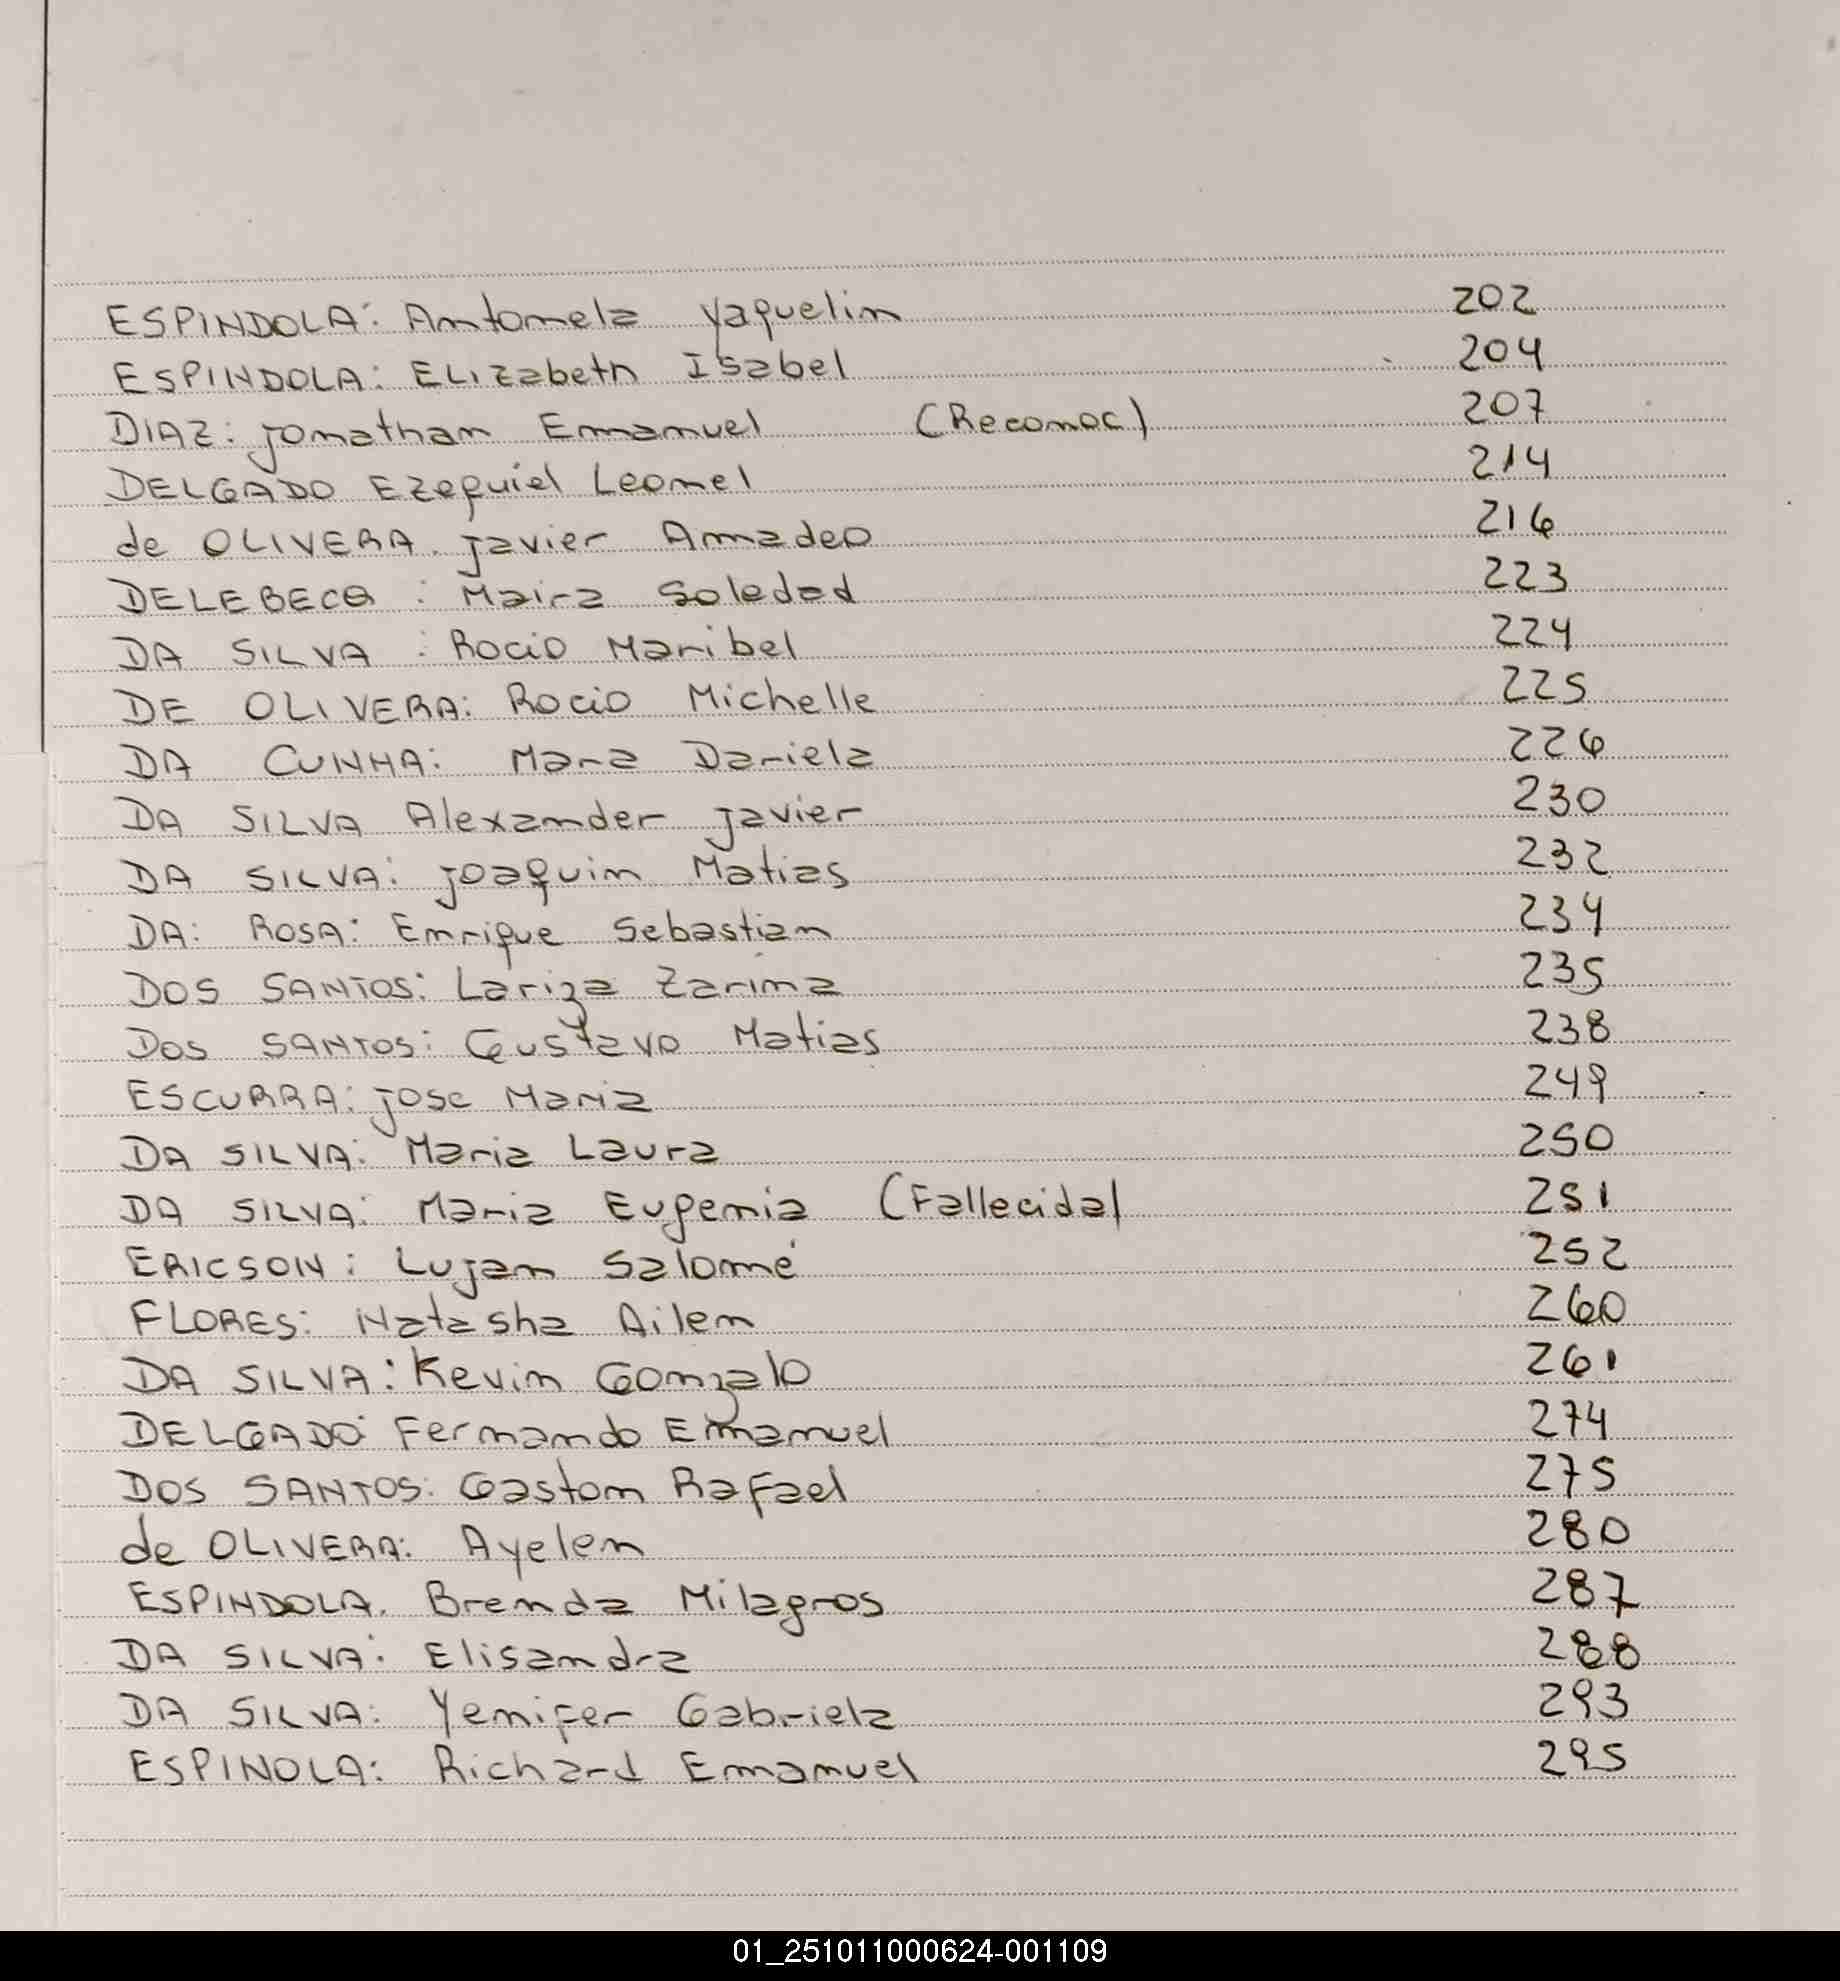 ESPINDOLA: Antonela Yaquelin 202
ESPINDOLA: ELIzabeth Isabel 204
DIAZ: Jonathan Emanuel (Reconoc) 207
DELGADO Ezequiel Leonel 214
de OLIVERA. Javier Amadeo 216
DELEBECQ : Maira Soledad 223
DA SILVA : Rocio Maribel 224
DE OLIVERA: Rocio Michelle 225
DA CUNHA: Mara Daniela 226
DA SILVA Alexander Javier 230
DA SILVA: Joaquin Matias 232
DA: ROSA: Enrique Sebastian 234
DOS SANTOS: Lariza Zarina 235
DOS SANTOS: Gustavo Matias 238
ESCURRA: Jose Maria 249
DA SILVA: Maria Laura 250
DA SILVA: Maria Eugenia (Fallecida) 251
ERICSON: Lujan Salomé 252
FLORES: Natasha Ailen 260
DA SILVA: Kevin Gonzalo 261
DELGADO: Fernando Emanuel 274
DOS SANTOS: Gaston Rafael 275
de OLIVERA: Ayelen 280
ESPINDOLA. Brenda Milagros 287
DA SILVA: Elisandra 288
DA SILVA: Yenifer Gabriela 293
ESPINOLA: Richard Emanuel 295
01_251011000624-001109